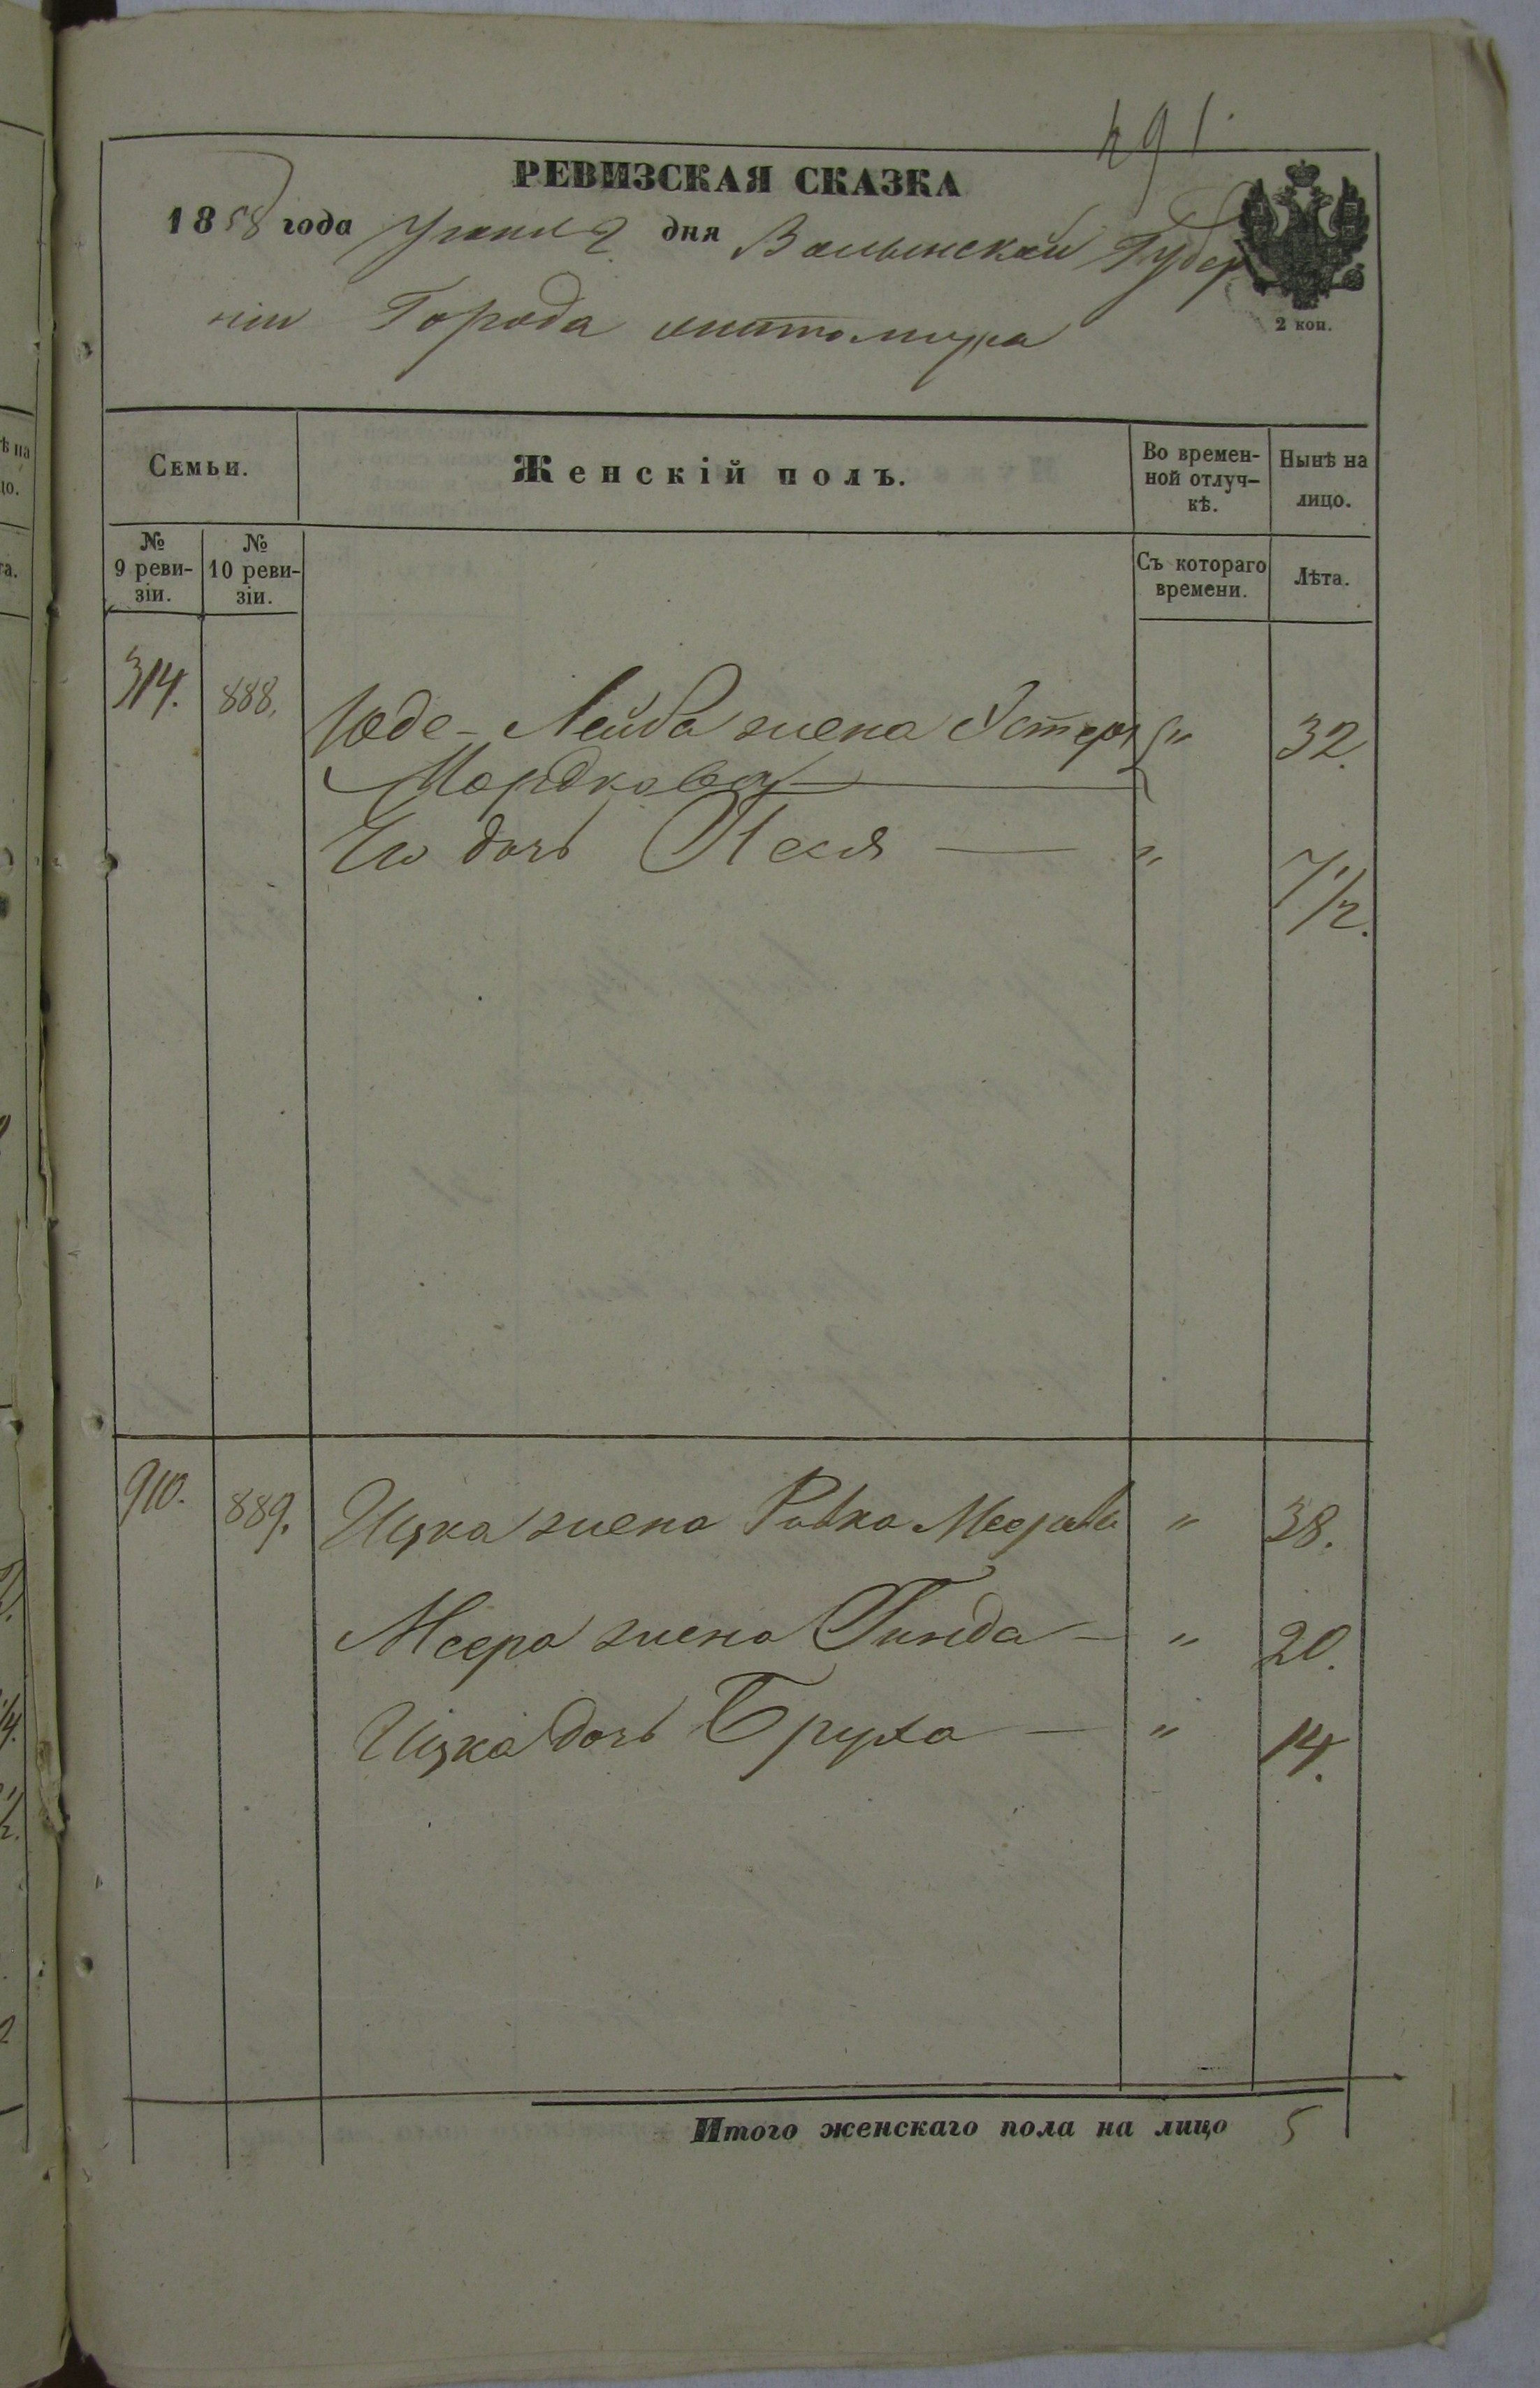 491.
РЕВИЗСКАЯ СКАЗКА
1858 года Іюня 2 дня Волынской Губер
ніи Города Житомира
2 коп.
Семьи.
Женскій полъ.
Во времен-
ной отлуч-
кѣ.
Нынѣ на
лицо.
№
9 реви-
зіи.
№
10 реви-
зіи.
Съ котораго
времени.
Лѣта.
314. 888. Юде-Лейба жена Эстера " 32.
Мордкова
Его дочь Песя — " 7 1/2.
910. 889. Ицка жена Ривка Меерова " 38.
Меера жена Гинда — " 20.
Ицка дочь Бруха — " 14.
Итого женскаго пола на лицо 5